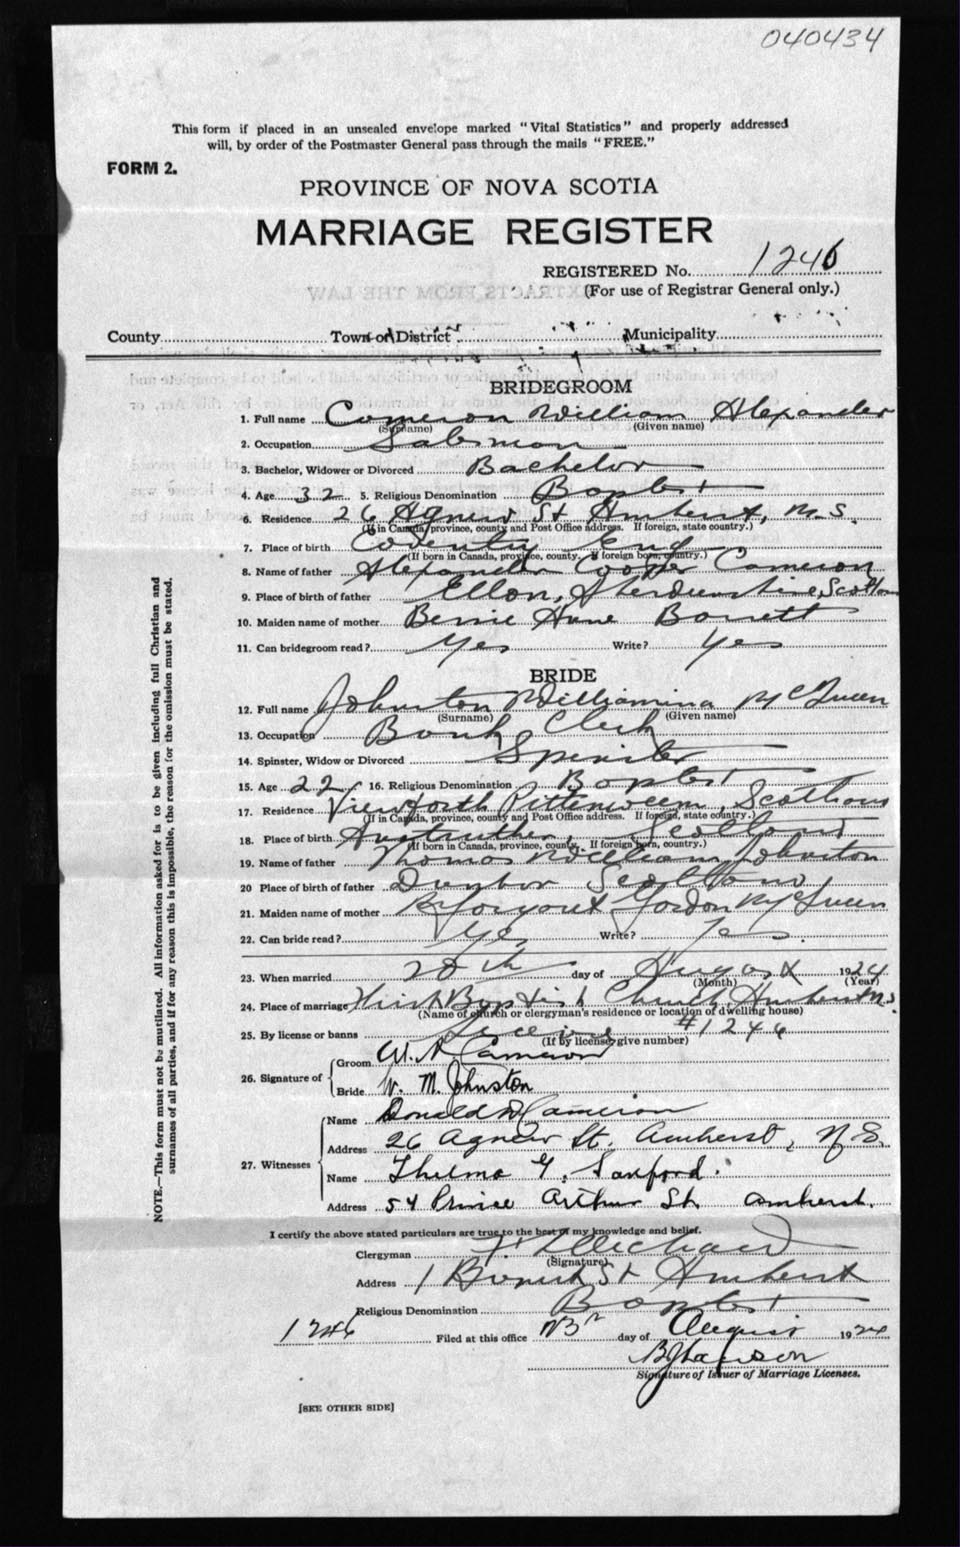 040434
This form if placed in an unsealed envelope marked "Vital Statistics" and properly addressed
will, by order of the Postmaster General pass through the mails "FREE."
FORM 2.
PROVINCE OF NOVA SCOTIA
MARRIAGE REGISTER
REGISTERED No. 1246
(For use of Registrar General only.)
County Town or District Municipality
BRIDEGROOM
1. Full name Cameron William Alexander
(Surname) (Given name)
2. Occupation Salesman
3. Bachelor, Widower or Divorced Bachelor
4. Age 32 5. Religious Denomination Baptist
6. Residence 26 Agnew St Amherst, N.S.
(If in Canada, province, county and Post Office address. If foreign, state country.)
7. Place of birth Coventry Eng
(If born in Canada, province, county. If foreign born, country.)
8. Name of father Alexander Cooper Cameron
9. Place of birth of father Ellon, Aberdeenshire, Scotland
10. Maiden name of mother Bessie Anne Barrett
11. Can bridegroom read? Yes Write? Yes
BRIDE
12. Full name Johnston Williamina McQueen
(Surname) (Given name)
13. Occupation Bank Clerk
14. Spinster, Widow or Divorced Spinster
15. Age 22 16. Religious Denomination Baptist
17. Residence Viewforth Pittenweem, Scotland
(If in Canada, province, county and Post Office address. If foreign, state country.)
18. Place of birth Anstruther, Scotland
(If born in Canada, province, county. If foreign born, country.)
19. Name of father Thomas William Johnston
20 Place of birth of father Dunbar Scotland
21. Maiden name of mother Margaret Gordon McQueen
22. Can bride read? Yes Write? Yes
23. When married 20th day of August 1924
(Month) (Year)
24. Place of marriage First Baptist Church, Amherst N.S.
(Name of church or clergyman's residence or location of dwelling house)
25. By license or banns License #1246
(If by license, give number)
26. Signature of Groom W. A Cameron
Bride W. M. Johnston
27. Witnesses
Name Donald D Cameron
Address 26 Agnew St. Amherst, N.S.
Name Thelma G. Sanford
Address 54 Prince Arthur St. Amherst.
I certify the above stated particulars are true to the best of my knowledge and belief.
Clergyman
(Signature)
Address 1 St Amherst
Religious Denomination Baptist
1246 Filed at this office day of August 1924
Signature of Issuer of Marriage Licenses.
[SEE OTHER SIDE]
NOTE.—This form must not be mutilated. All information asked for is to be given including full Christian and
surnames of all parties, and if for any reason this is impossible, the reason for the omission must be stated.
EXTRACTS FROM THE LAW